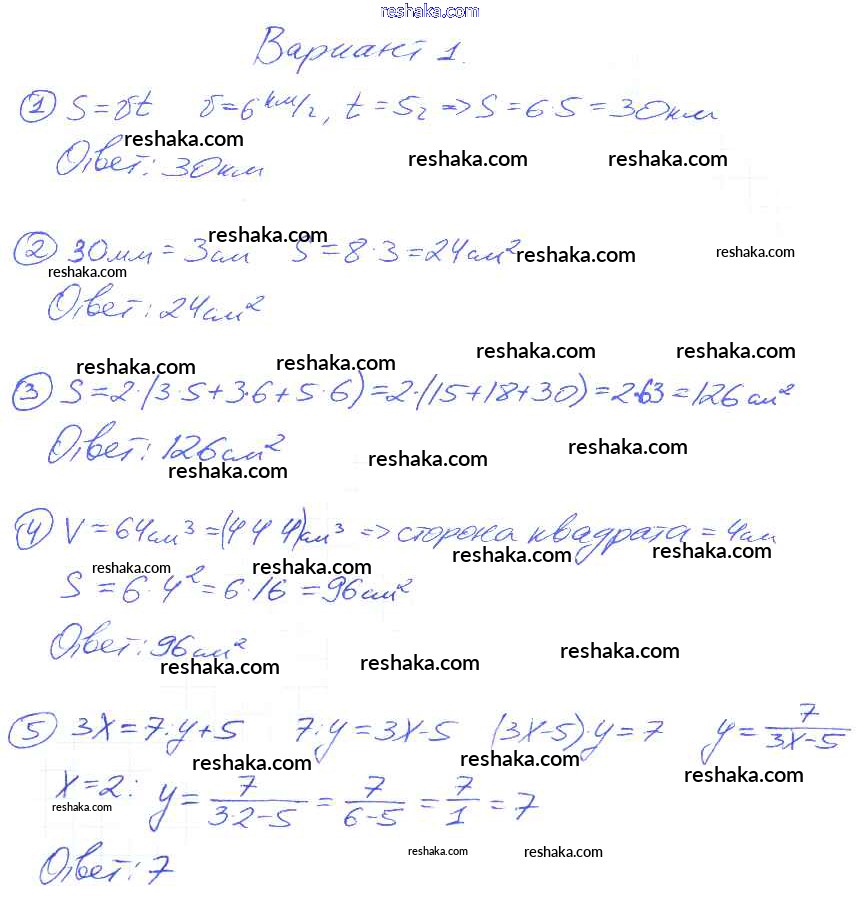 reshaka.com
Вариант 1.
① S = υt υ = 6 км/г, t = 5г => S = 6·5 = 30км
reshaka.com reshaka.com reshaka.com
Ответ: 30км
reshaka.com
② 30мм = 3см S = 8·3 = 24см² reshaka.com reshaka.com
reshaka.com
Ответ: 24см²
reshaka.com reshaka.com
reshaka.com reshaka.com
③ S = 2·(3·5+3·6+5·6) = 2·(15+18+30) = 2·63 = 126см²
Ответ: 126см²
reshaka.com reshaka.com reshaka.com
④ V = 64см³ = (4 4 4)см³ => сторона квадрата = 4см
reshaka.com reshaka.com reshaka.com reshaka.com
S = 6·4² = 6·16 = 96см²
Ответ: 96см²
reshaka.com reshaka.com reshaka.com
⑤ 3X = 7:y+5 7:y = 3X-5 (3X-5)·y = 7 y = 7/(3X-5)
reshaka.com reshaka.com reshaka.com
X = 2: y = 7/(3·2-5) = 7/(6-5) = 7/1 = 7
reshaka.com
Ответ: 7
reshaka.com reshaka.com